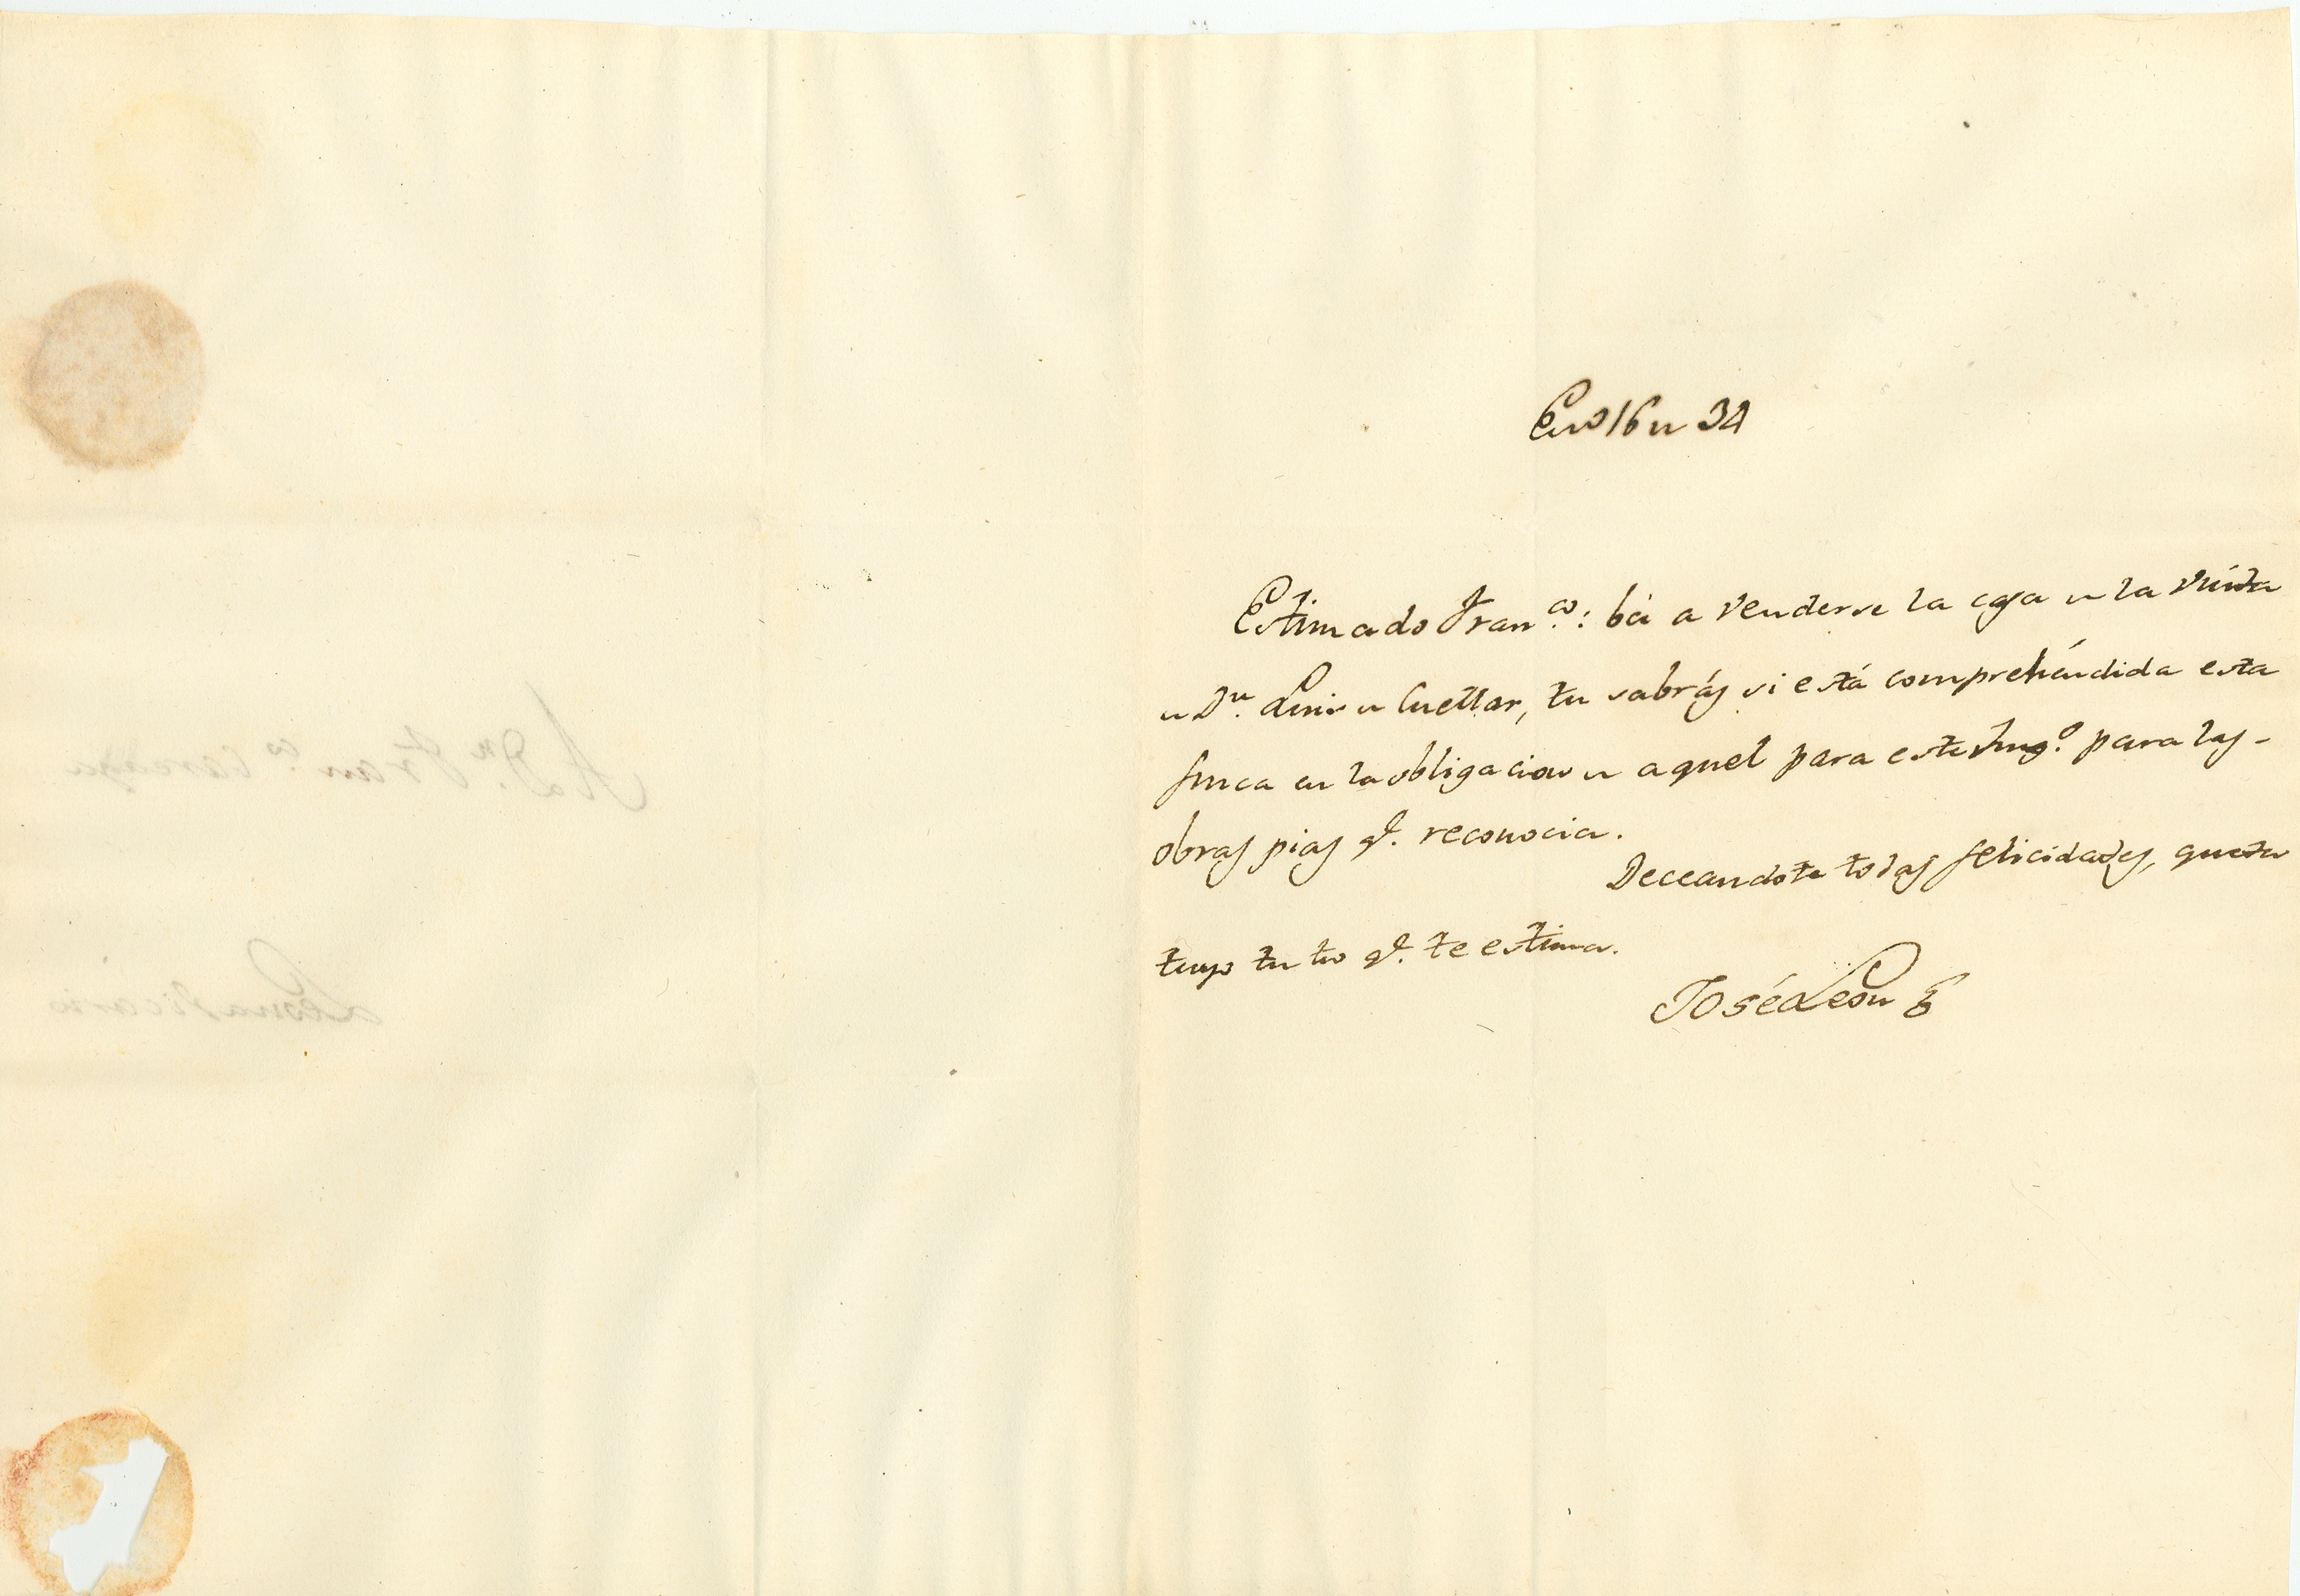 Enº 16 de 34
Estimado Franco.: bá a venderse la casa de la viúda
de Dn. Luis de Cuellar, tu sabrás si está comprehéndida esta
finca en la obligacion de aquel para este Juzgº. para las -
obras pias qe. reconocia.
Deceandote todas felicidades, queda
tuyo tu tio qe. te estima.
José Leon
A Dn. Franco.
Leona Vicario